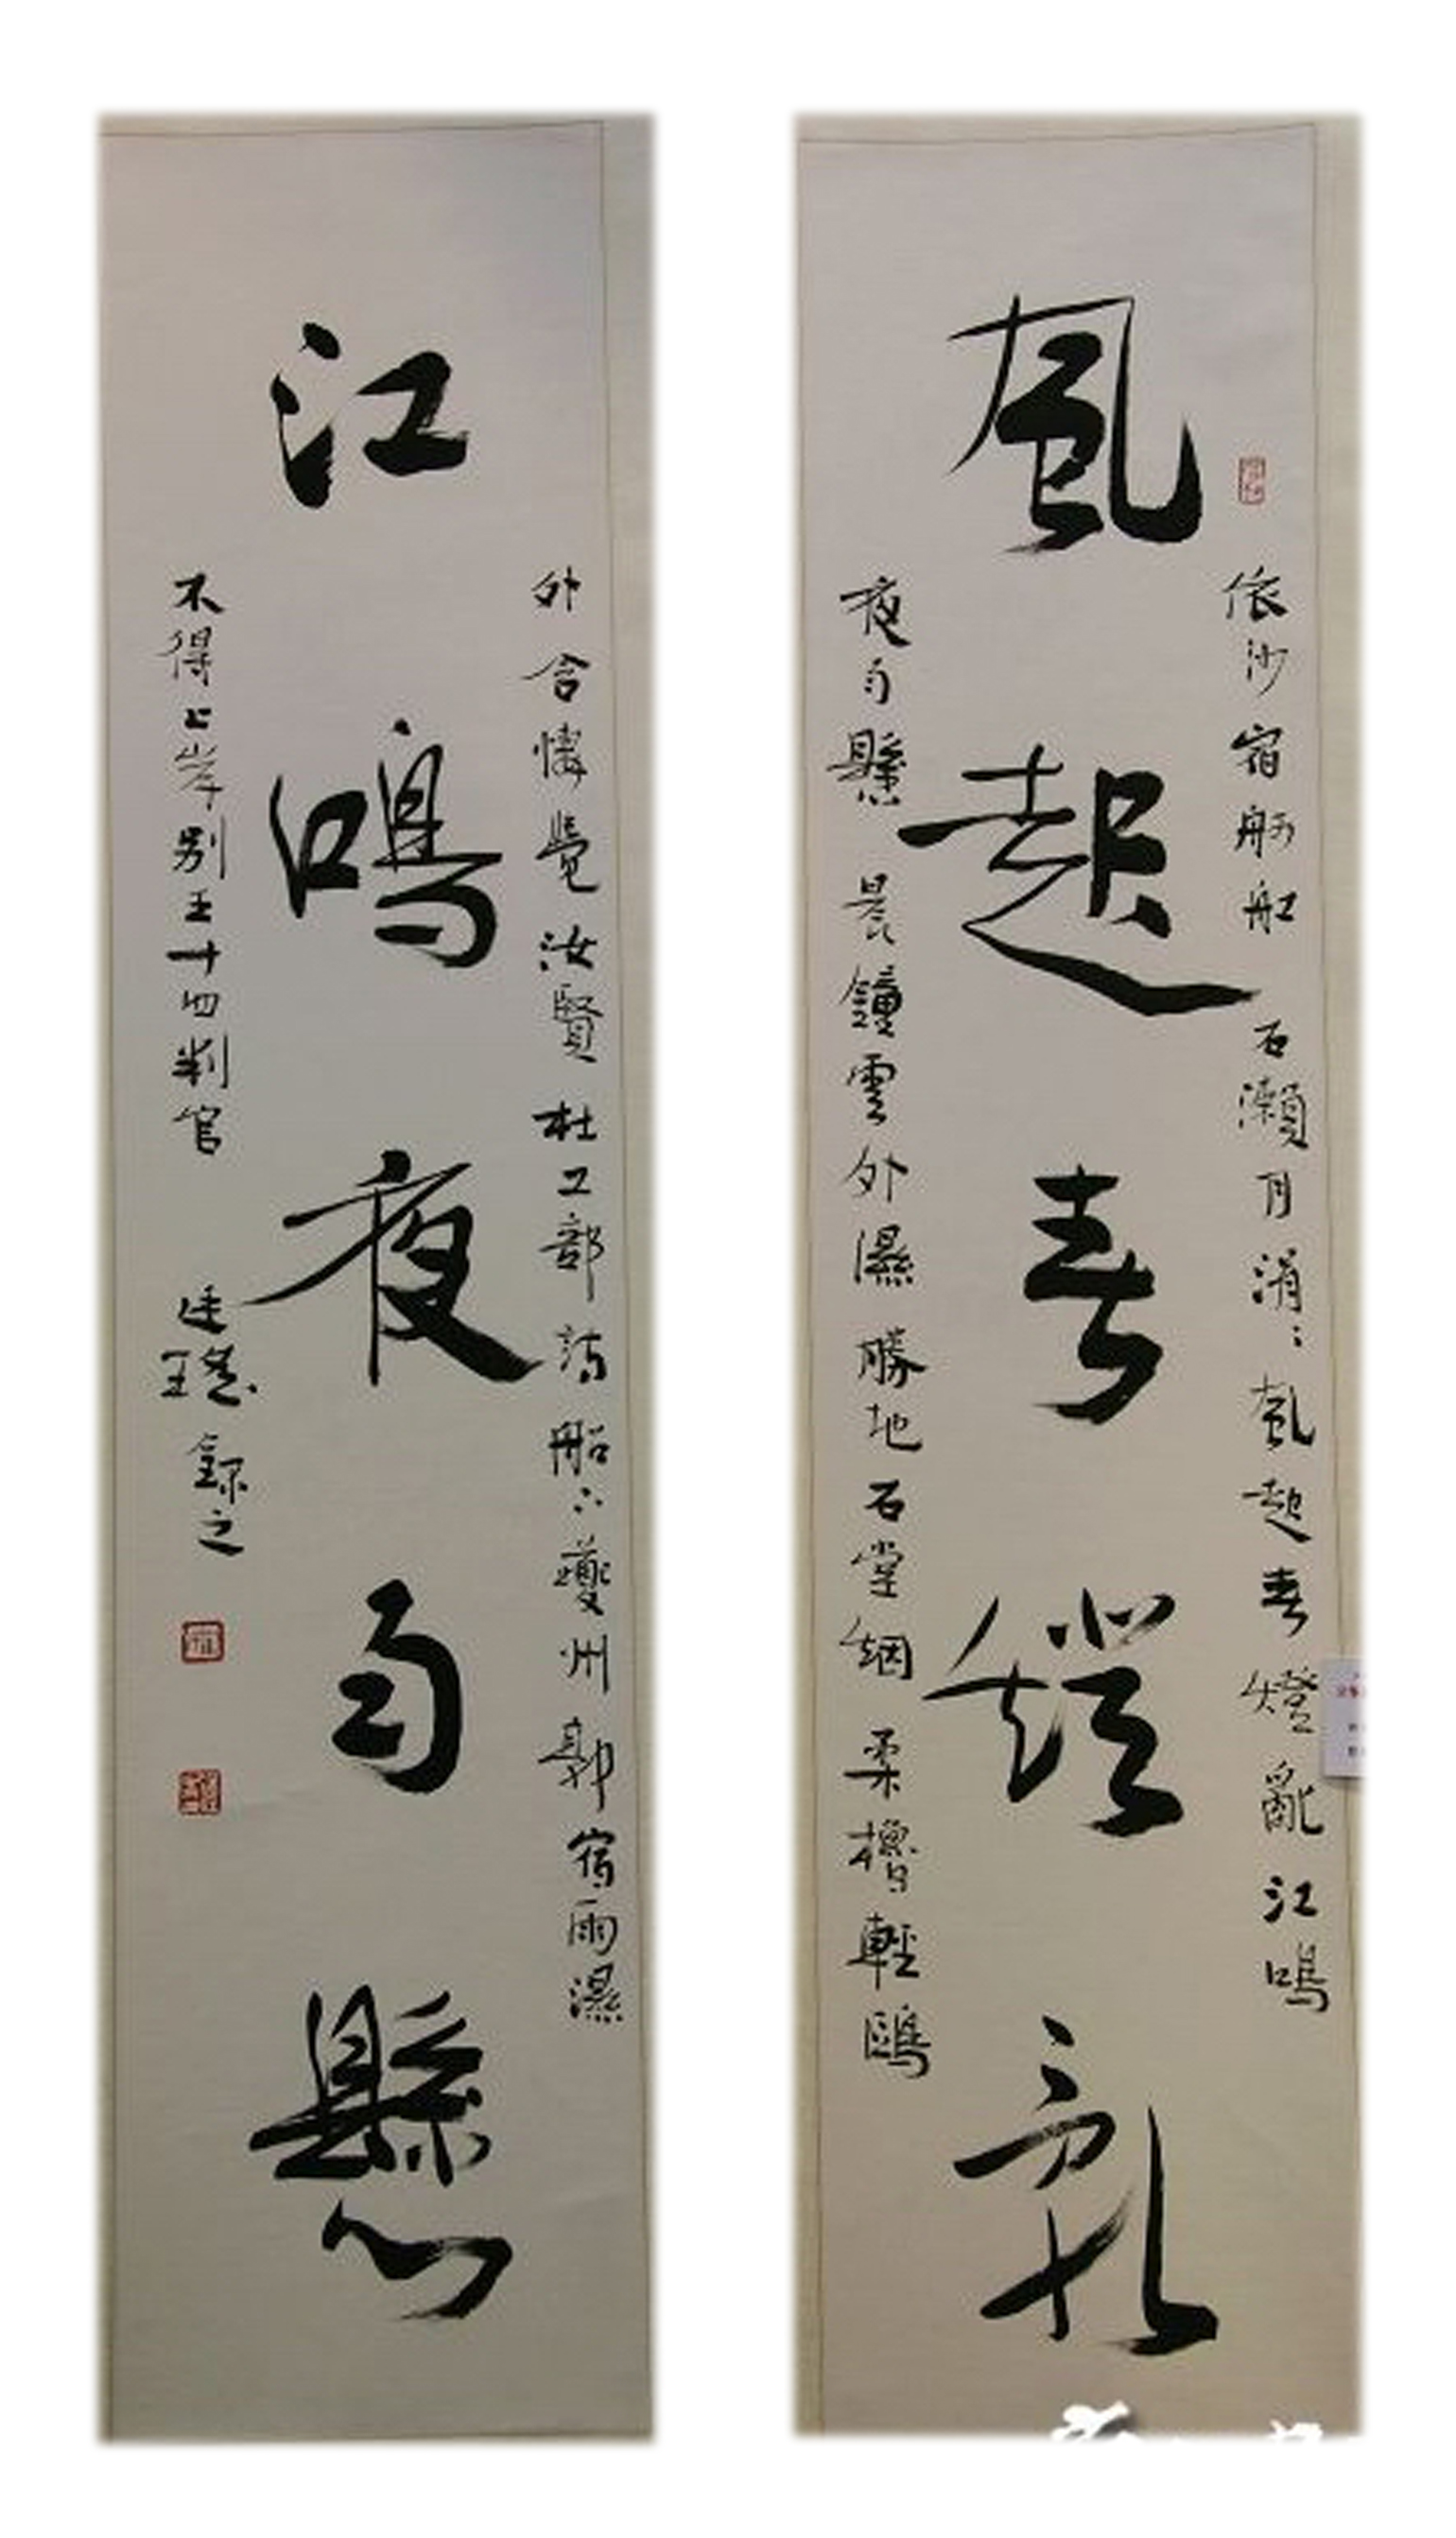 風起春燈亂
依沙宿舸船 石瀨月涓〻 風起春燈亂 江鳴
夜雨懸 晨鐘雲外濕 勝地石堂烟 柔櫓輕鷗
江鳴夜雨懸
外 含悽覺汝賢 杜工部詩 船下夔州郭宿雨濕
不得上岸別王十四判官 廷 錄之